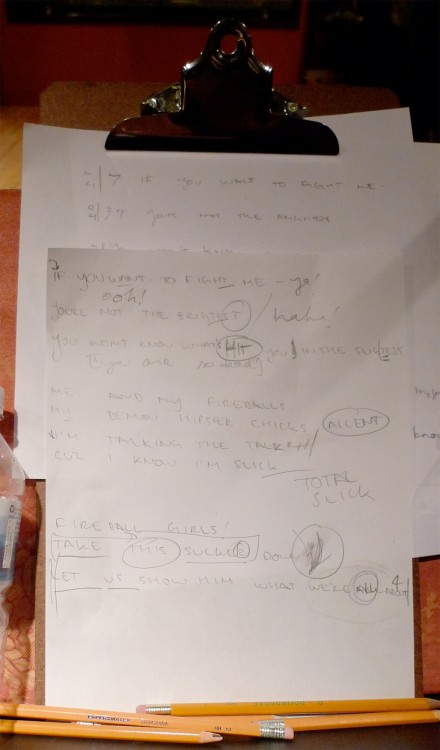 7 IF YOU WANT TO FIGHT ME-
YOU'RE NOT THE BRIGHTEST
IF YOU WANT TO FIGHT ME - ya!
ooh!
YOU'RE NOT THE BRIGHTEST / haha!
YOU WON'T KNOW WHAT'S HIT you IN THE SLIGHTEST
you are so dead
ME AND MY FIREBALLS
MY DEMON HIPSTER CHICKS ACCENT
I'M TALKING THE TALK
CUZ I KNOW I'M SLICK
TOTAL SLICK
FIREBALL GIRLS!
TAKE THIS SUCKER DOWN
LET US SHOW HIM WHAT WE'RE ALL ABOUT 4